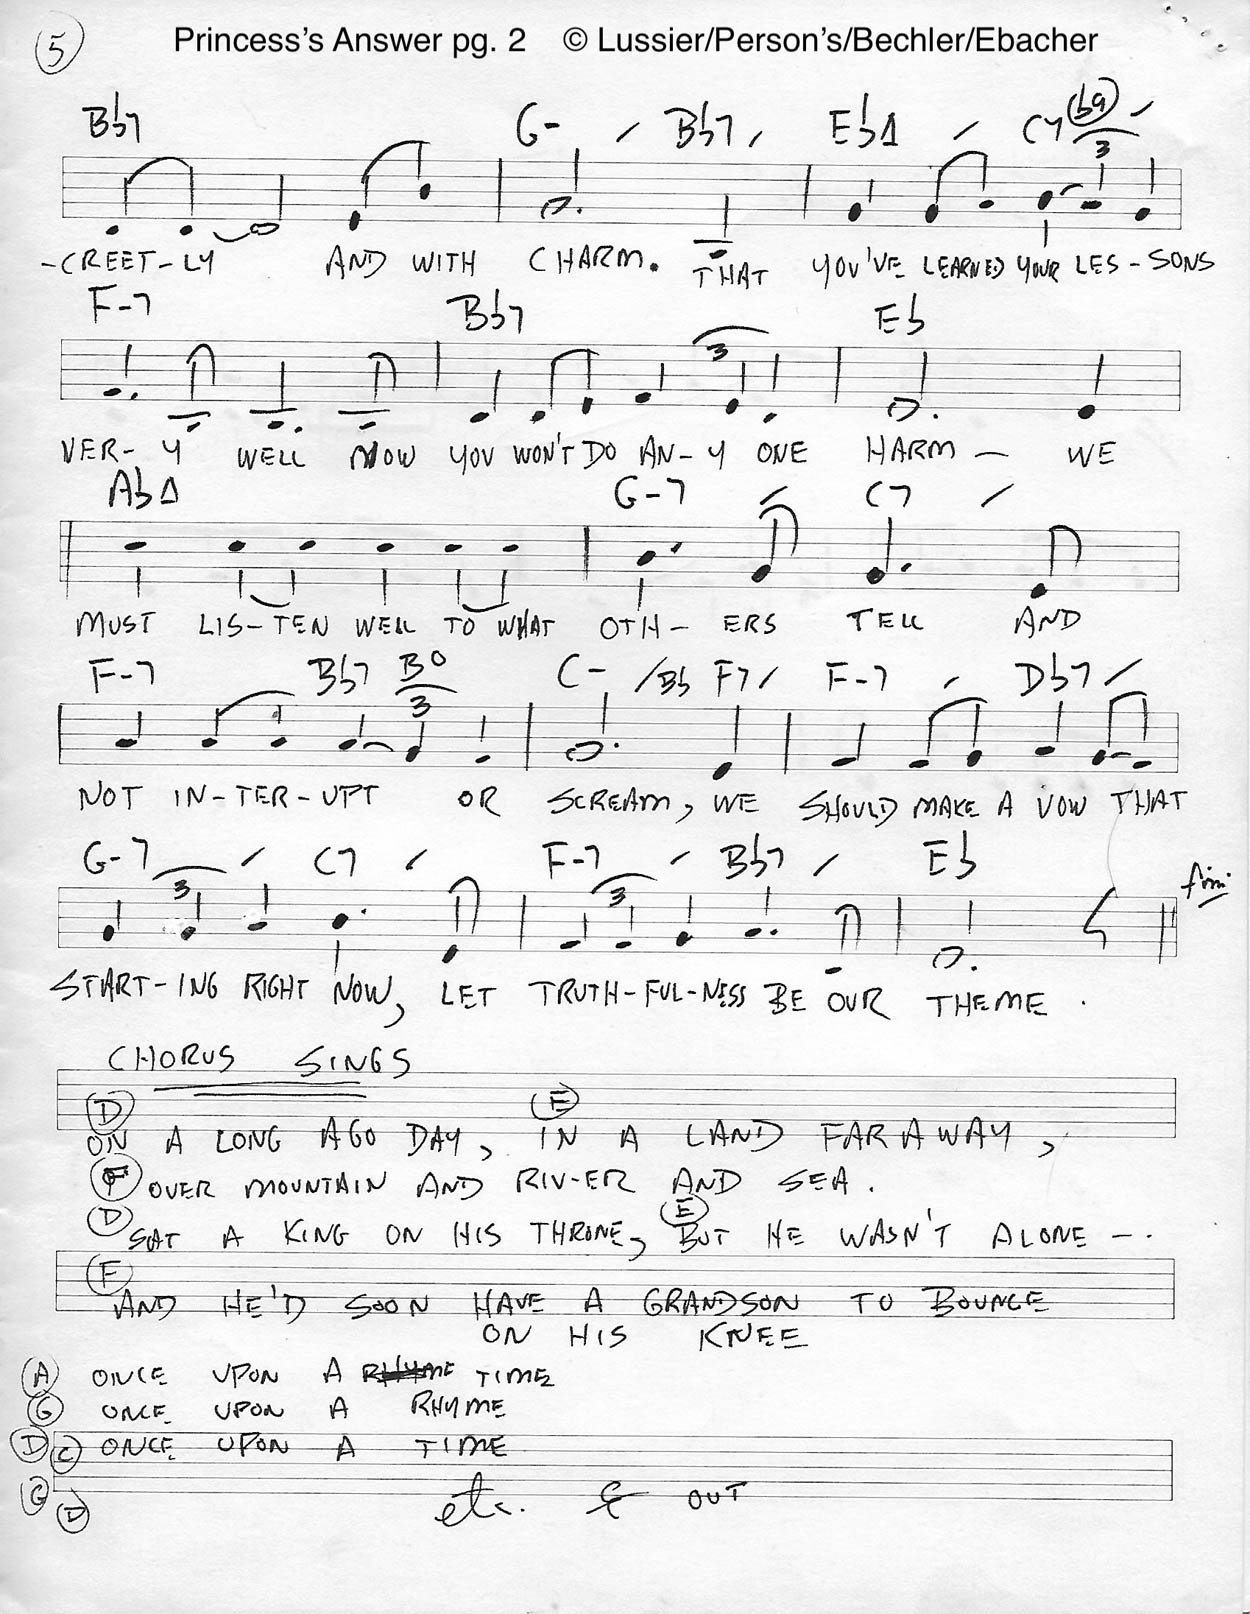 5 Princess's Answer pg. 2 © Lussier/Person's/Bechler/Ebacher
B♭7 G- / B♭7 / E♭Δ / C7 (♭9) /
3
-CREET-LY AND WITH CHARM. THAT YOU'VE LEARNED YOUR LES-SONS
F-7 B♭7 E♭
3
VER-Y WELL NOW YOU WON'T DO AN-Y ONE HARM — WE
A♭Δ G-7 / C7 /
MUST LIS-TEN WELL TO WHAT OTH-ERS TELL AND
F-7 B♭7 B° C- /B♭ F7 / F-7 / D♭7 /
3
NOT IN-TER-UPT OR SCREAM, WE SHOULD MAKE A VOW THAT
G-7 / C7 / F-7 / B♭7 / E♭
3 3 fini
START-ING RIGHT NOW, LET TRUTH-FUL-NESS BE OUR THEME.
CHORUS SINGS
D E
ON A LONG AGO DAY, IN A LAND FAR AWAY,
F OVER MOUNTAIN AND RIV-ER AND SEA.
D E
SAT A KING ON HIS THRONE, BUT HE WASN'T ALONE -.
F
AND HE'D SOON HAVE A GRANDSON TO BOUNCE
ON HIS KNEE
A ONCE UPON A RHYME TIME
G ONCE UPON A RHYME
D C ONCE UPON A TIME
G D etc. & OUT